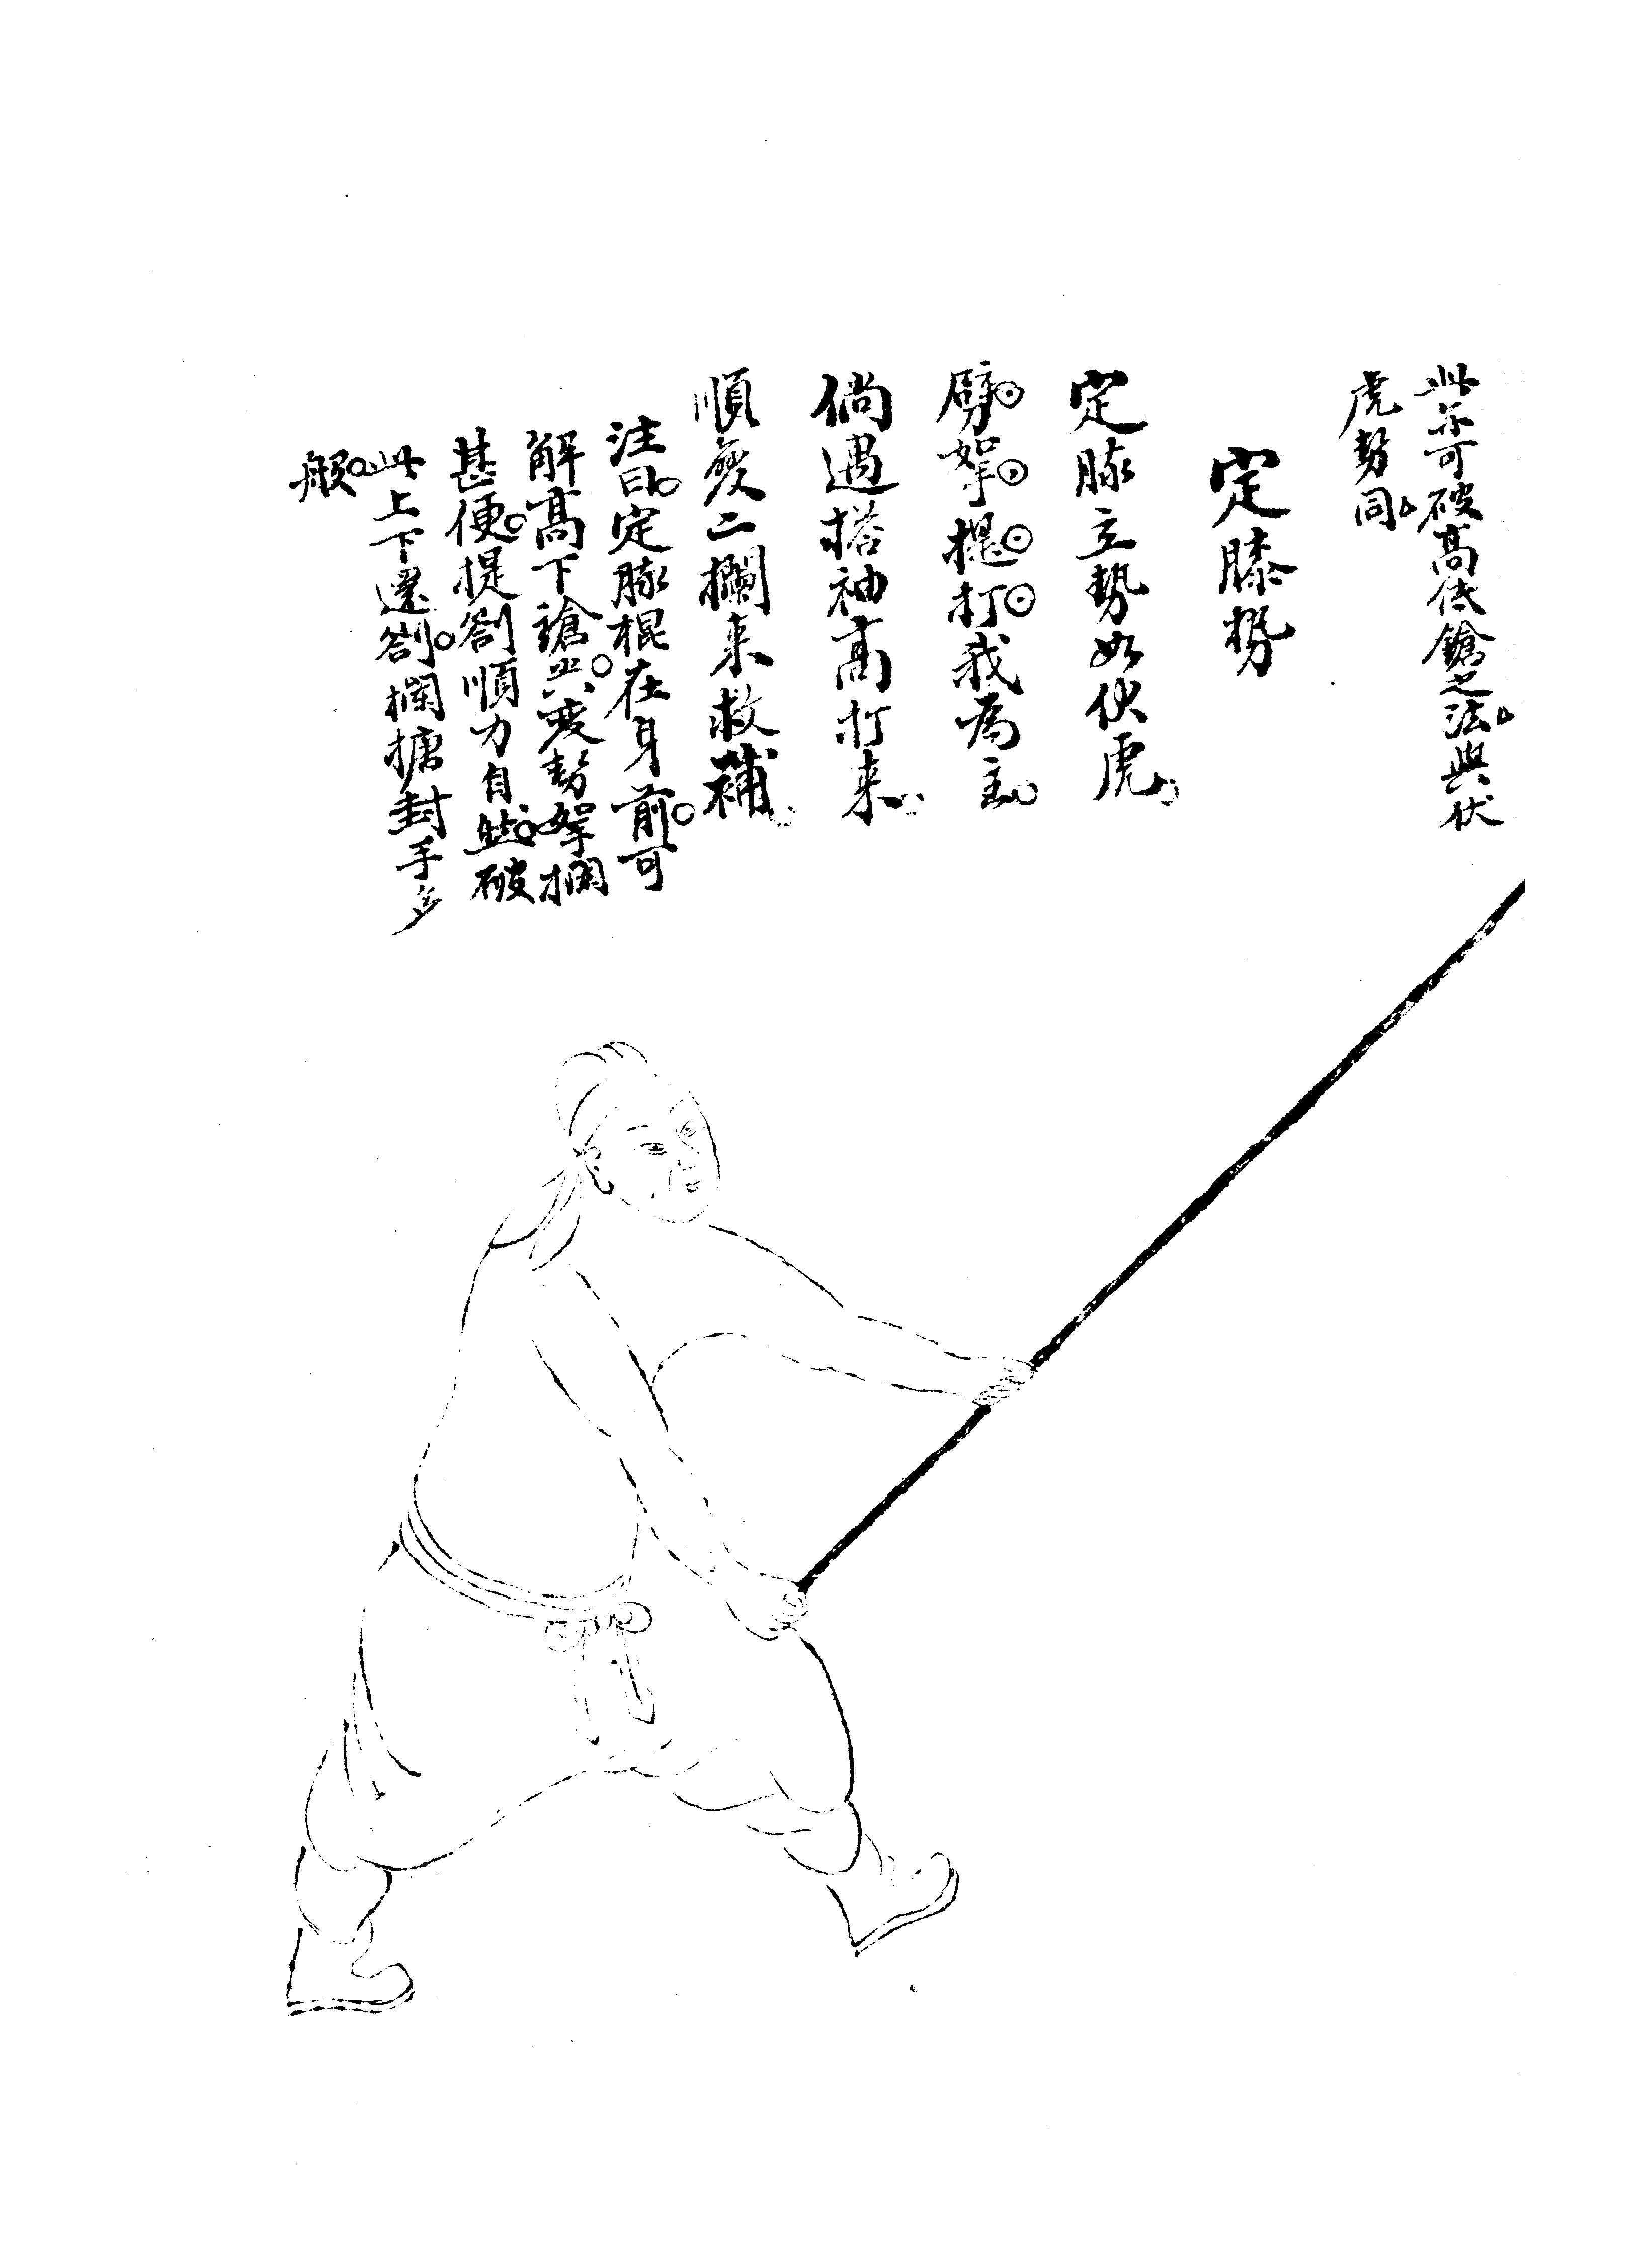 此亦可破高低鎗之法與伏
虎势同
定膝势
定膝立勢如伏虎
劈拏提打我為主
倘遇搭袖高打来
順变二攔来救補
注曰定膝棍在身前可
解高下鎗其变势拏攔
甚便提劄順力自然破
此上下還劄攔搪封手多
般